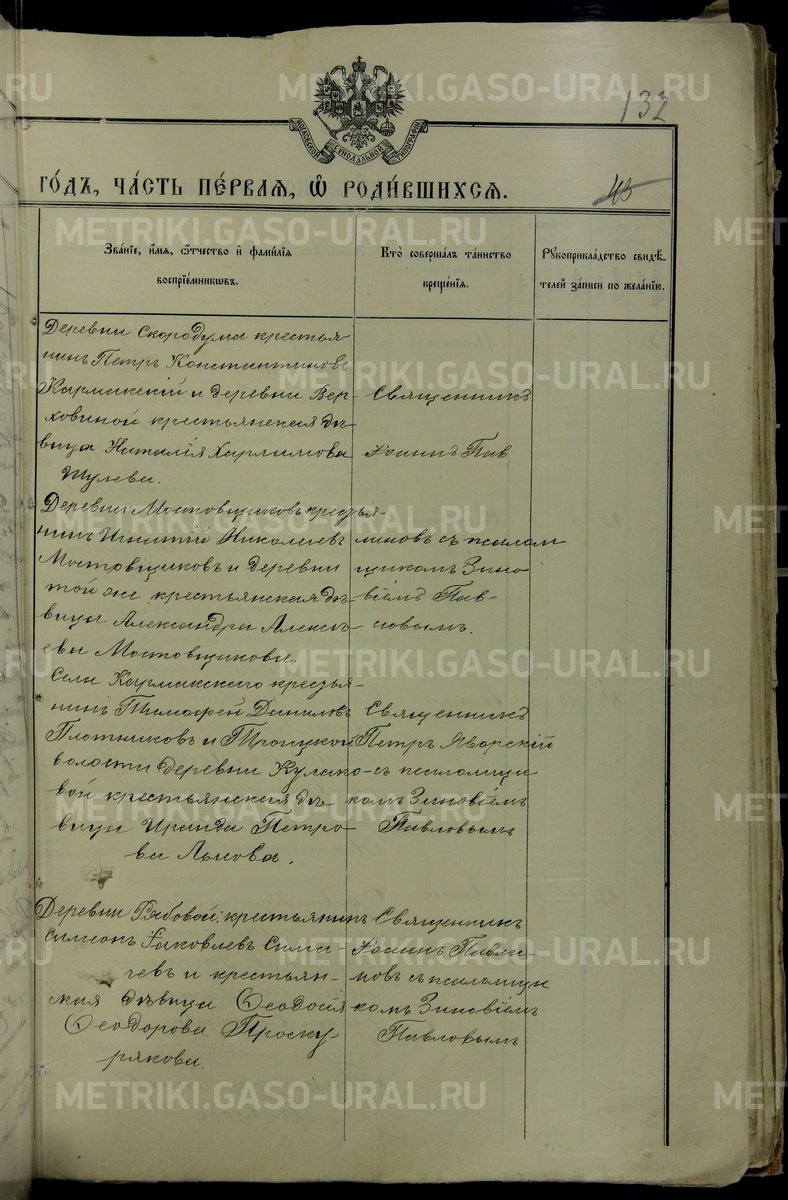 132
МОСКОВСКОЙ СѴНОДАЛЬНОЙ ТИПОГРАФІИ
ГО́ДЪ, ЧА́СТЬ ПЕ́РВАЯ, Ѡ РОДИ́ВШИХСЯ.
45
Зва́нїе, и́мя, ѻ҆́тчество и҆ фами́лїя
воспрїе́мниковъ.
Кто̀ соверша́лъ та́инство
креще́нїя.
Рꙋкоприкла́дство свидѣ́-
телей за́писи по жела́нїю.
Деревни Скородума крестья-
нинъ Петръ Константиновъ
Кармакскій и деревни Вер-
ховиной крестьянская дѣ-
вица Наталія Харлимова
Шулева.
Священникъ
Іоаннъ Пав
Деревни Мостовщиковъ крестья-
нинъ Игнатій Николаевъ
Мостовщиковъ и деревни
той же крестьянская дѣ-
вица Александра Алексѣ-
ева Мостовщикова.
линовъ съ псалом
щикомъ Зино
віемъ Пав-
ловымъ.
Села Кармакскаго крестья-
нинъ Тимофей Даниловъ
Плотниковъ и Троицкой
волости деревни Кулако-
вой крестьянская дѣ-
вица Ираида Петро-
ва Львова.
Священникъ
Петръ Яворскій
съ псаломщи
комъ Зиновіемъ
Павловымъ
Деревни Рябовой крестьянинъ
Симеонъ Іаковлевъ Сима-
чевъ и крестьян-
ская дѣвица Ѳеодосія
Ѳеодорова Проску-
рякова.
Священникъ
Іоаннъ Павли-
новъ съ псаломщи
комъ Зиновіемъ
Павловымъ
METRIKI.GASO-URAL.RU